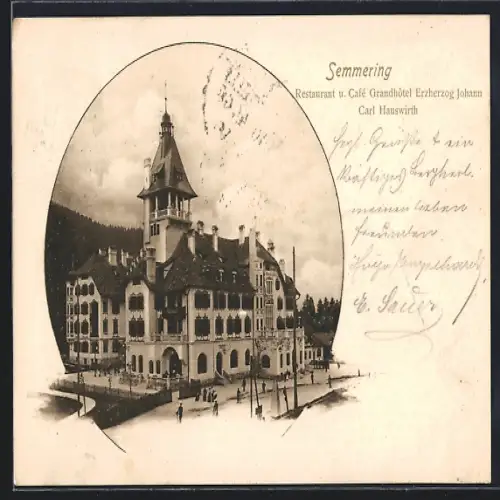 Semmering
Restaurant u. Café Grandhôtel Erzherzog Johann
Carl Hauswirth
Herzl. Grüße & ein
kräftiges Bergheil
meinen lieben
Freunden
E. Sauer